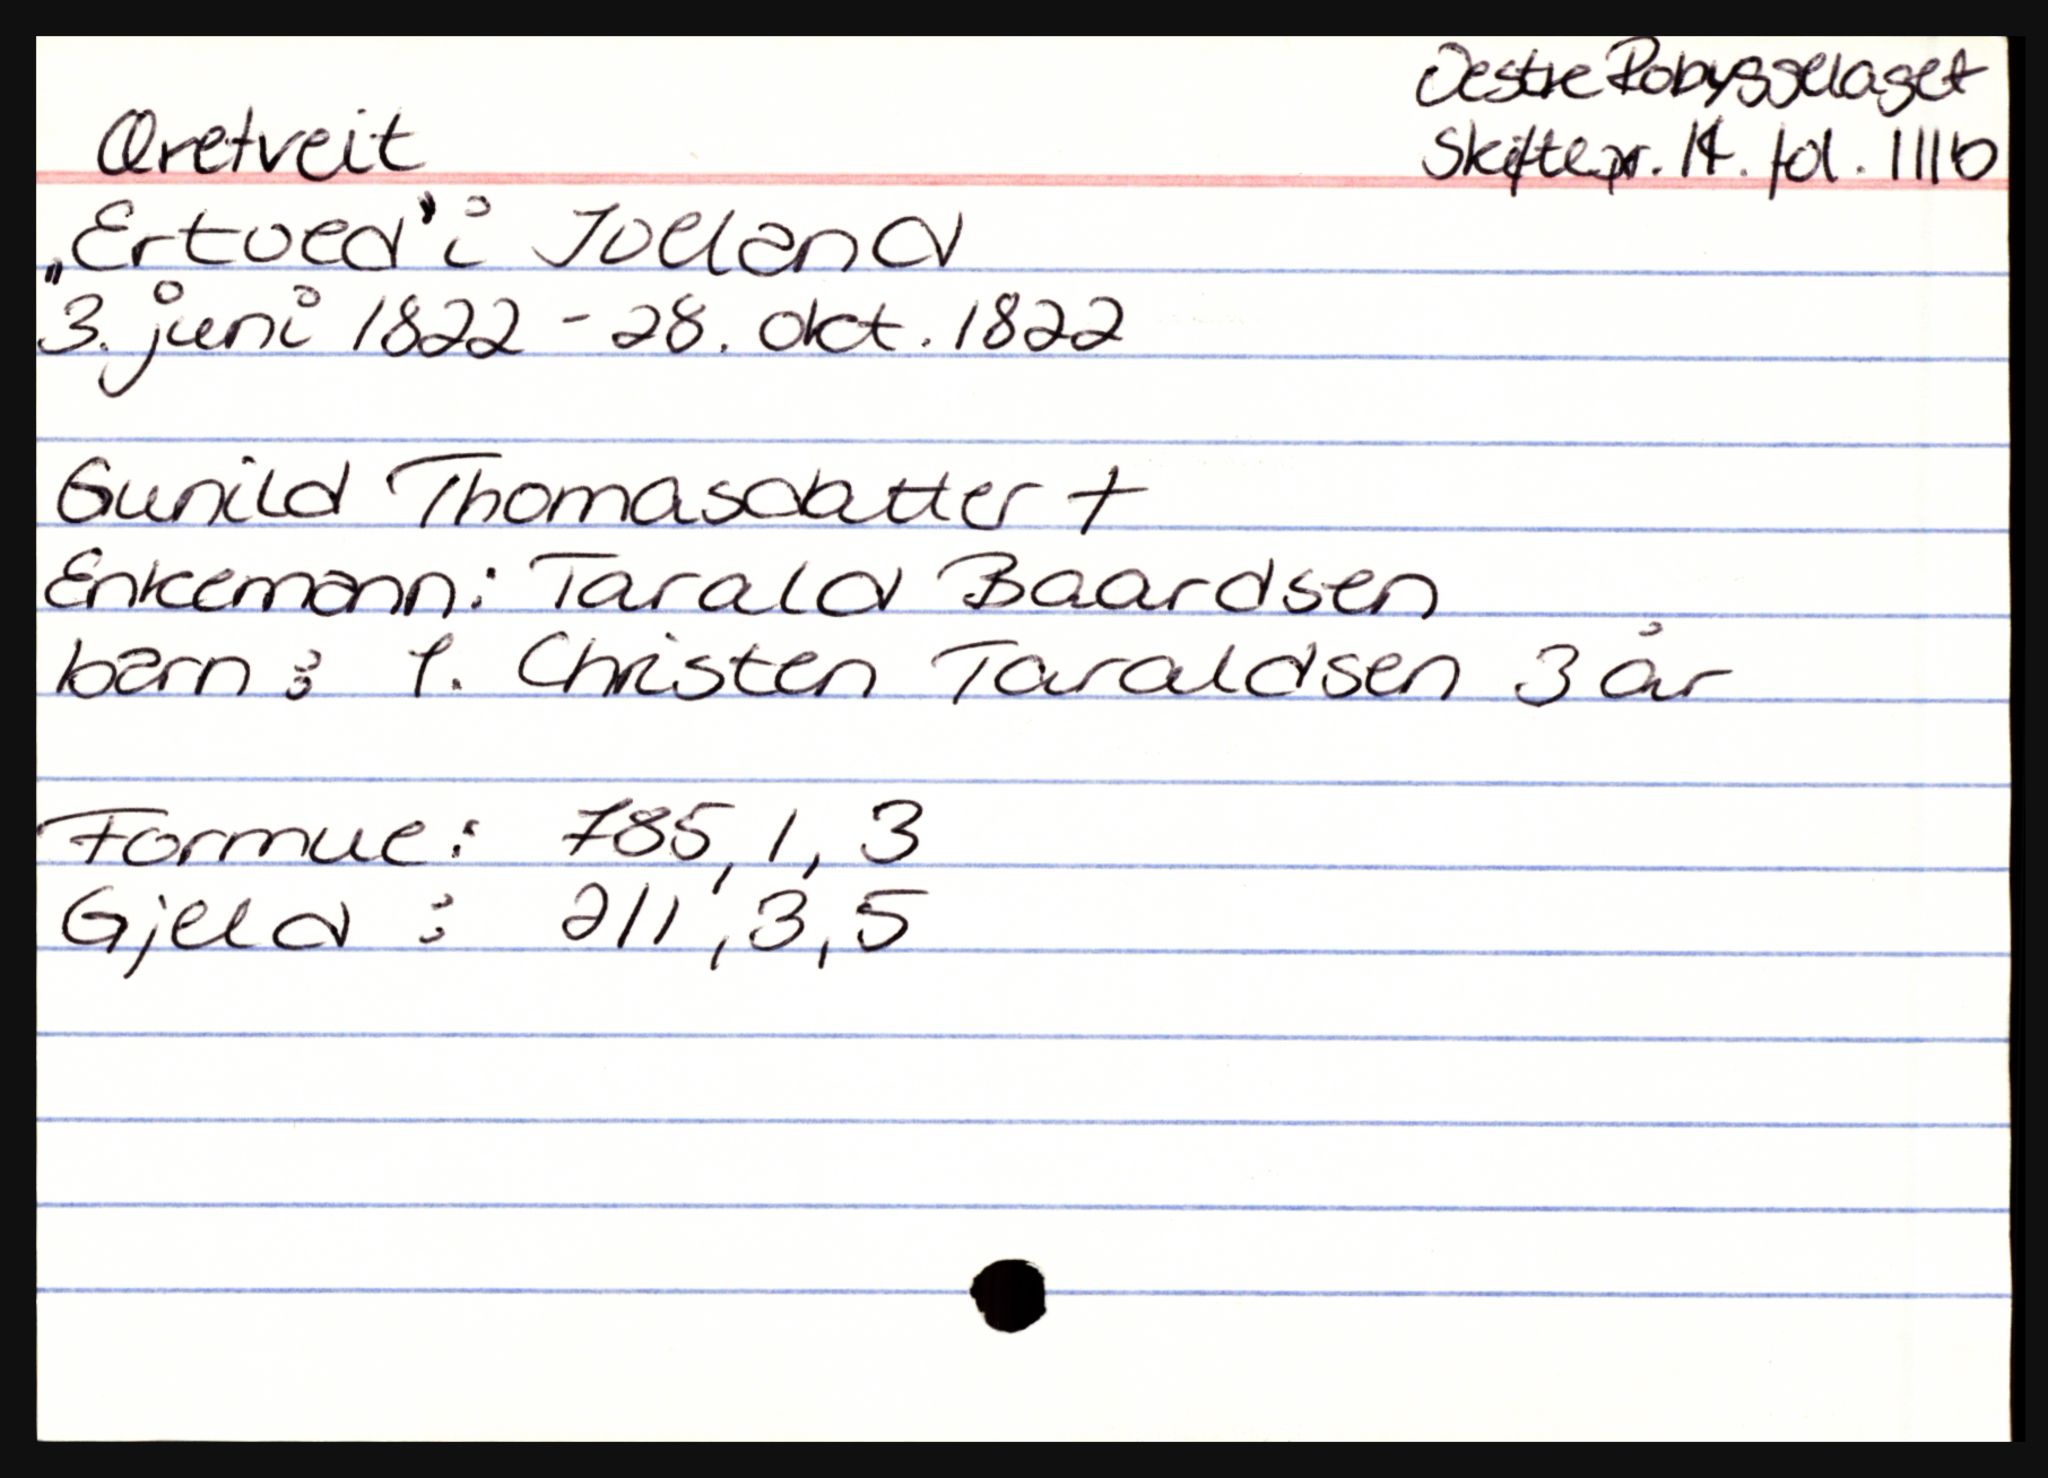 Oretveit
Vestre Robyggelaget
Skiftepr. 14. fol. 111b
„Ertved" i Iveland
3. juni 1822 - 28. okt. 1822
Gunild Thomasdatter +
Enkemann: Tarald Baardsen
barn : 1. Christen Taraldsen 3 år
Formue: 785, 1, 3
Gjeld : 211, 3, 5